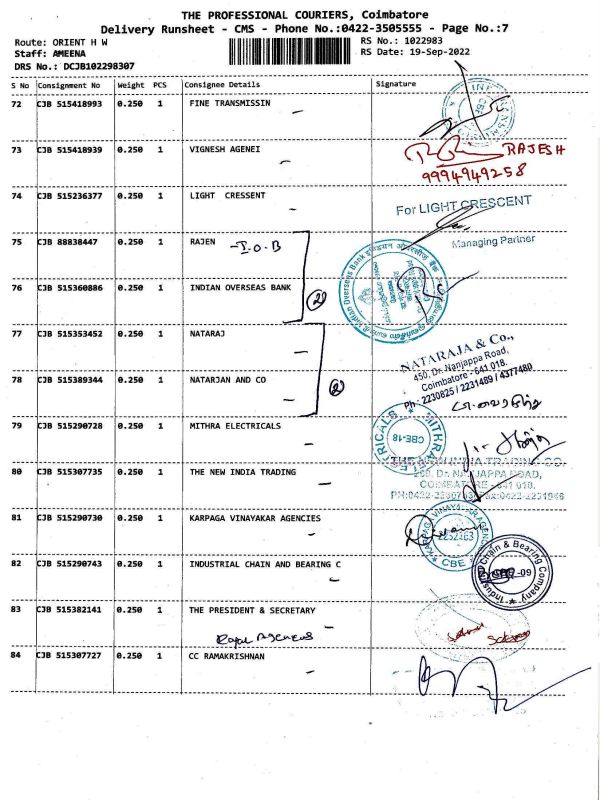 THE PROFESSIONAL COURIERS, Coimbatore
Delivery Runsheet - CMS - Phone No.:0422-3505555 - Page No.:7
Route: ORIENT H W RS No.: 1022983
Staff: AMEENA RS Date: 19-Sep-2022
DRS No.: DCJB102298307
S No Consignment No Weight PCS Consignee Details Signature
72 CJB 515418993 0.250 1 FINE TRANSMISSIN
73 CJB 515418939 0.250 1 VIGNESH AGENEI RAJESH
9994949258
74 CJB 515236377 0.250 1 LIGHT CRESSENT
For LIGHT CRESCENT
Managing Partner
75 CJB 88838447 0.250 1 RAJEN - I.O.B
Indian Overseas Bank
76 CJB 515360886 0.250 1 INDIAN OVERSEAS BANK
2
77 CJB 515353452 0.250 1 NATARAJ
NATARAJA & Co.,
450, Dr. Nanjappa Road,
Coimbatore - 641 018.
Ph - 2230825 / 2231489 / 4377480
78 CJB 515389344 0.250 1 NATARJAN AND CO
2
79 CJB 515290728 0.250 1 MITHRA ELECTRICALS
MITHRA ELECTRICALS
CBE-18
80 CJB 515307735 0.250 1 THE NEW INDIA TRADING
INDIA TRADING CO.
Dr. NANJAPPA ROAD,
81 CJB 515290730 0.250 1 KARPAGA VINAYAKAR AGENCIES
CBE
82 CJB 515290743 0.250 1 INDUSTRIAL CHAIN AND BEARING C
Chain & Bearing Company
83 CJB 515382141 0.250 1 THE PRESIDENT & SECRETARY
84 CJB 515307727 0.250 1 CC RAMAKRISHNAN